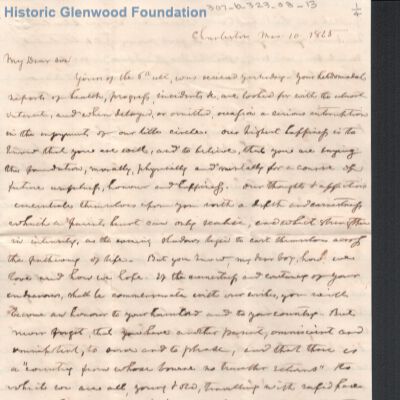 Historic Glenwood Foundation
307-b.323_03-13
1/4
Charleston Mar. 10. 1825
My Dear son
Yours of the 6th ult, was received yesterday. Your hebdomadal
reports of health, progress, incidents &c are looked for with the utmost
interest, and when delayed, or omitted, occasion a serious interruption
in the enjoyments of our little circle. Our highest happiness is to
know that you are well, and to believe, that you are laying
the foundation, morally, physically and mentally for a course of
future usefulness, honour and happiness. Our thoughts & affections
concentrate themselves upon you with a depth and earnestness
which a parents heart can only realise, and which strengthen
in intensity, as the evening shadows begin to cast themselves across
the pathway of life. But you know my dear boy, how we
love and how we hope. If the and of your
endeavours, shall be commensurate with our wishes, you will
become an honour to your and to your country. But
never forget, that you have another parent, omniscient and
omnipotent, to serve and to please, and that there is
a "country from whose bourne no traveller returns" to
which we are all, young & old, travelling with rapid haste